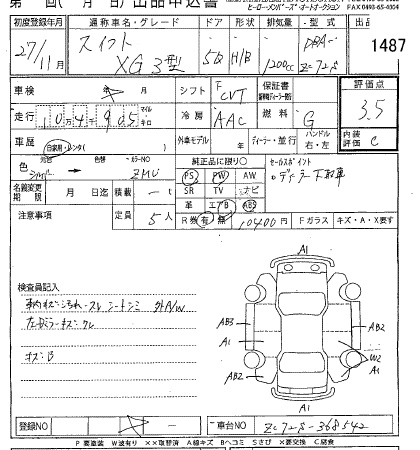 出品申込書
ヒーローメンバーズ・オートオークション
FAX 0493-65-4004
初度登録年月 通称車名・グレード ドア 形状 排気量 型式 出品
27/11月 スイフト XG 3型 5D H/B 1200cc DBA- ZC72S 1487
車検 年 月 シフト F CVT 保証書 評価点
走行 10万4千905 マイル キロ 冷房 AAC 燃料 G 3.5
車歴 自家用・レンタ( ) 外車モデル 年 ディーラー・並行 ハンドル 右・左 内装評価 C
色 元色 シルバー 色替 カラーNO ZMU 純正品に限り○ セールスポイント
PS PW AW 。ディーラー下取車
名義変更期限 月 日迄 積載 ー t SR TV ナビ
革 エアB ABS
注意事項 定員 5人 R券 有 無 10400円 Fガラス キズ・A・X要す
検査員記入
車内キズ汚れ・スレ シートシミ 外A/W
左ドアミラーキズ・スレ
キズ・B
A1
AB3
A1
AB2
AB2
W2
A1
A1
登録NO ー 車台NO ZC72S-368542
P 要塗装 W波有り ××取替済 A線キズ Bヘコミ Sさび ×要交換 C腐食